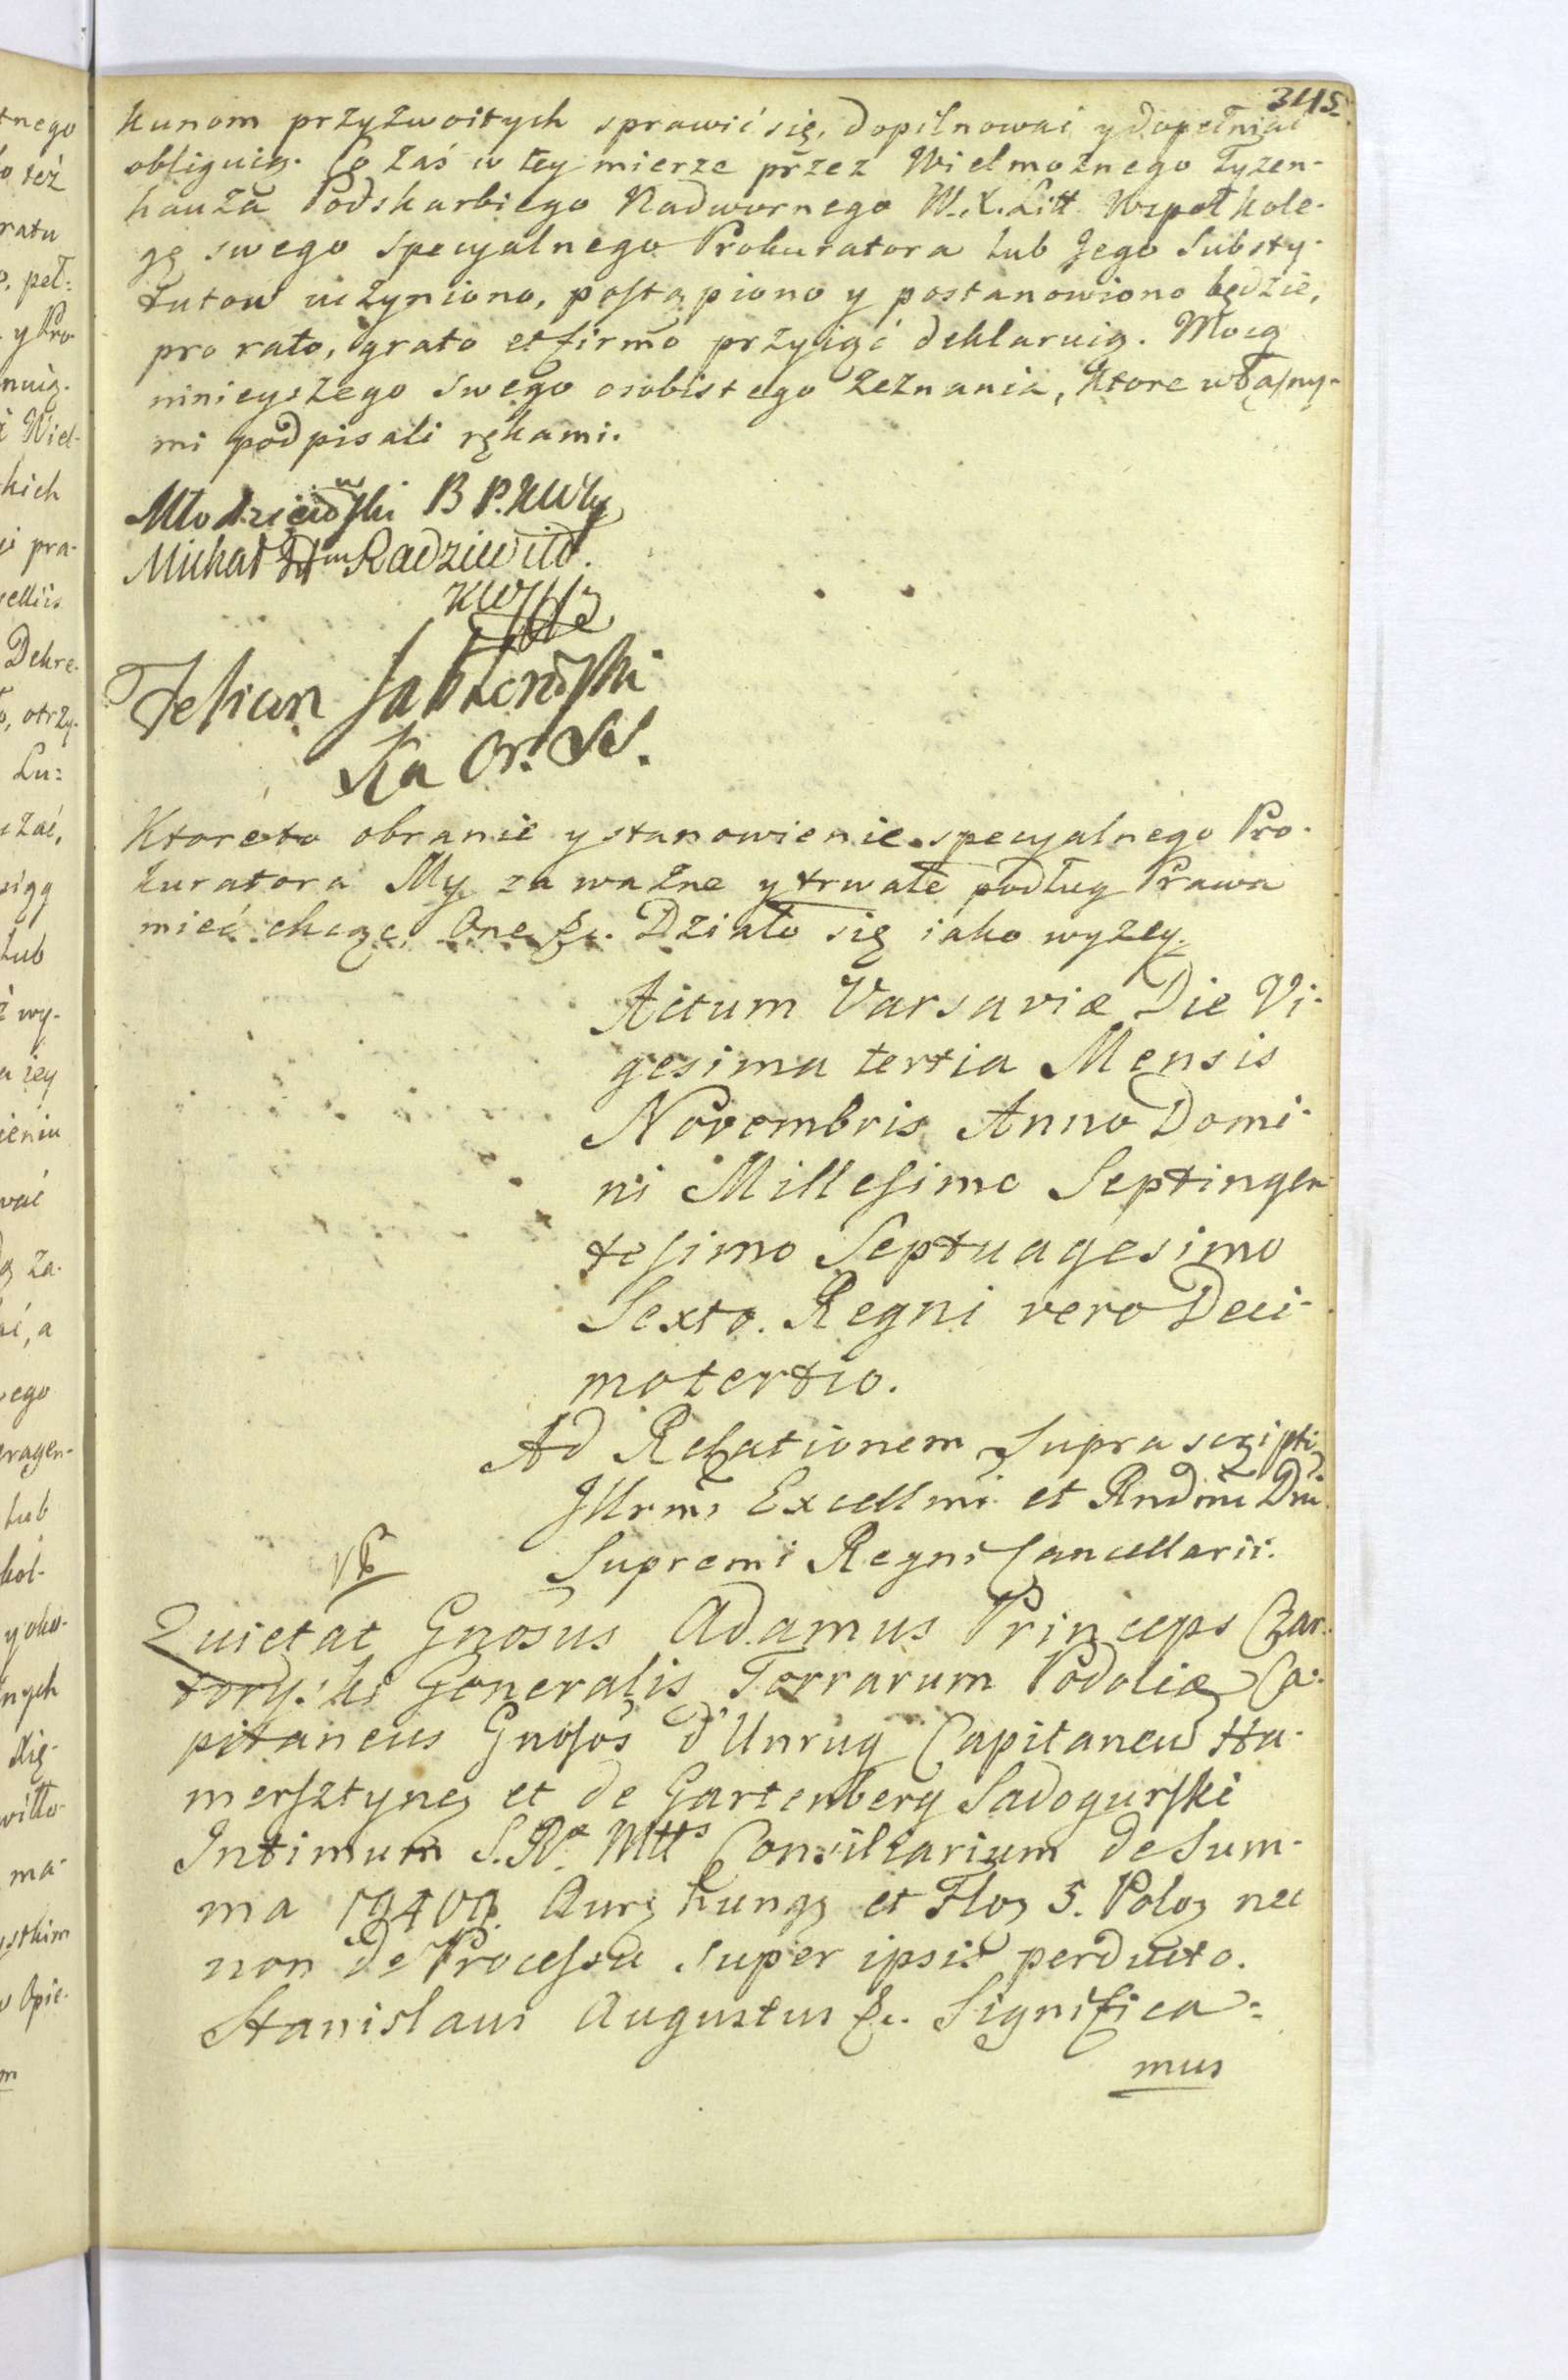 345
kunom przyzwoitych sprawić się, dopilnować y dopełniać
obliguią. Co zaś w tey mierze przez Wielmożnego Tyzen-
hauza Podskarbiego Nadwornego W. X. Litt Wspoł kole-
gę swego specyalnego Prokuratora lub Jego Substy-
tutow uczyniono, postąpiono y postanowiono będzie,
pro rato, grato et firmo przyiąć deklaruią. Mocą
ninieyszego swego osobistego zeznania, ktore własny-
mi podpisali rękami.
Młodzieiowski B P. KWK
Michał Radziwiłł.
KWW
Felician Jabłonowski
Ka Or.
Ktoreto obranie y stanowienie specyalnego Pro-
kuratora My za ważne y trwałe podług Prawa
mieć chcąc, One &c. Działo się iako wyzey.
Actum Varsaviæ Die Vi-
gesima tertia Mensis
Novembris Anno Domi-
ni Millesimo Septingen-
tesimo Septuagesimo
Sexto. Regni vero Deci-
motertio.
Ad Relationem Suprascripti
Illrmi Excellmi et Rndmi Dni
Supremi Regni Cancellarii.
Quietat Gnosus Adamus Princeps Czar-
toryski Generalis Terrarum Podoliæ Ca-
pitaneus Gnosos d'Unrug Capitaneū Ha-
mersztynen et de Gartenberg Sadogurski
Intimum S. Ræ Mtts Consiliarium de Sum-
ma Aur hung et Flor 5. Polo nec
non de Processu super ipsis perducto.
Stanislaus Augustus &c. Significa-
mus